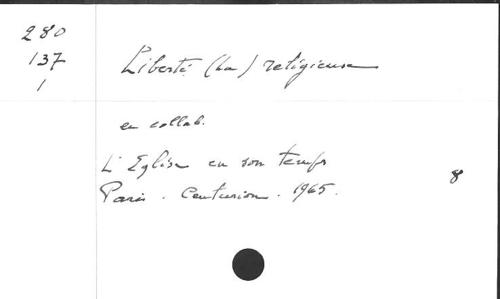 280
137
1
Liberté (La) religieuse
en collab.
L'Eglise en son temps
Paris. Centurion. 1965.
8